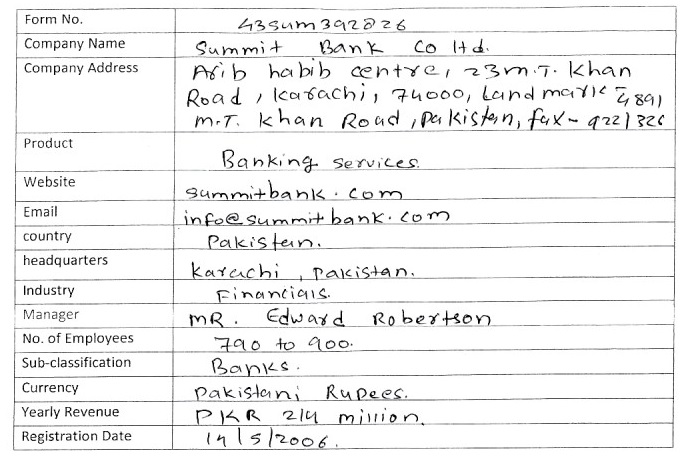 Form No. 43sum392826
Company Name Summit Bank Co ltd.
Company Address Arib habib centre, 23 m.T. Khan
Road, Karachi, 74000, Landmark - 4891
M.T. Khan Road, Pakistan, fax - 9221326
Product Banking services.
Website summitbank.com
Email info@summitbank.com
country Pakistan.
headquarters Karachi, Pakistan.
Industry Financials.
Manager MR. Edward Robertson
No. of Employees 790 to 900.
Sub-classification Banks.
Currency Pakistani Rupees.
Yearly Revenue PKR 214 million.
Registration Date 14/5/2006.